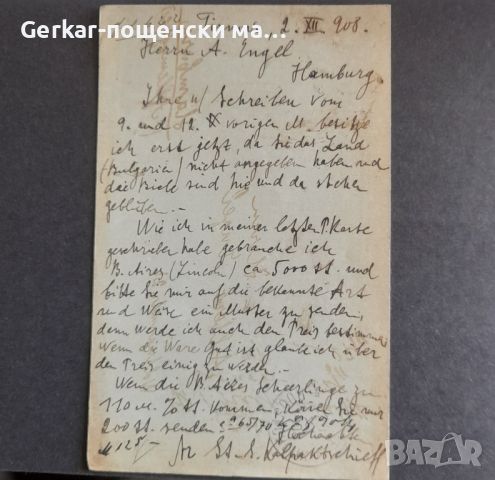 Gerkar-пощенски ма...
2. XII. 908.
Herrn A. Engel
Hamburg.
Ihre w/ Schreiben vom
9. und 12. X vorigen M. besitze
ich erst jetzt, da Sie das Land
(Bulgarien) nicht angegeben haben und
die Briefe sind hie und da stehen
geblieben. –
Wie ich in meiner letzten P. Karte
geschrieben habe gebrauche ich
B. Aires (Lincoln) ca 5000 St. und
bitte Sie mir auf die bekannte Art
und Weise ein Muster zu senden,
denn werde ich auch den Preis bestimmen
wenn die Ware gut ist glaube ich über
den Preis einig zu werden. –
Wenn die B. Aires Scheerlinge zu
110 M. % St. kommen, können Sie mir
200 St. senden 65/70
M 125 –
St. S. Kalpaktschieff
BAZAR
bg